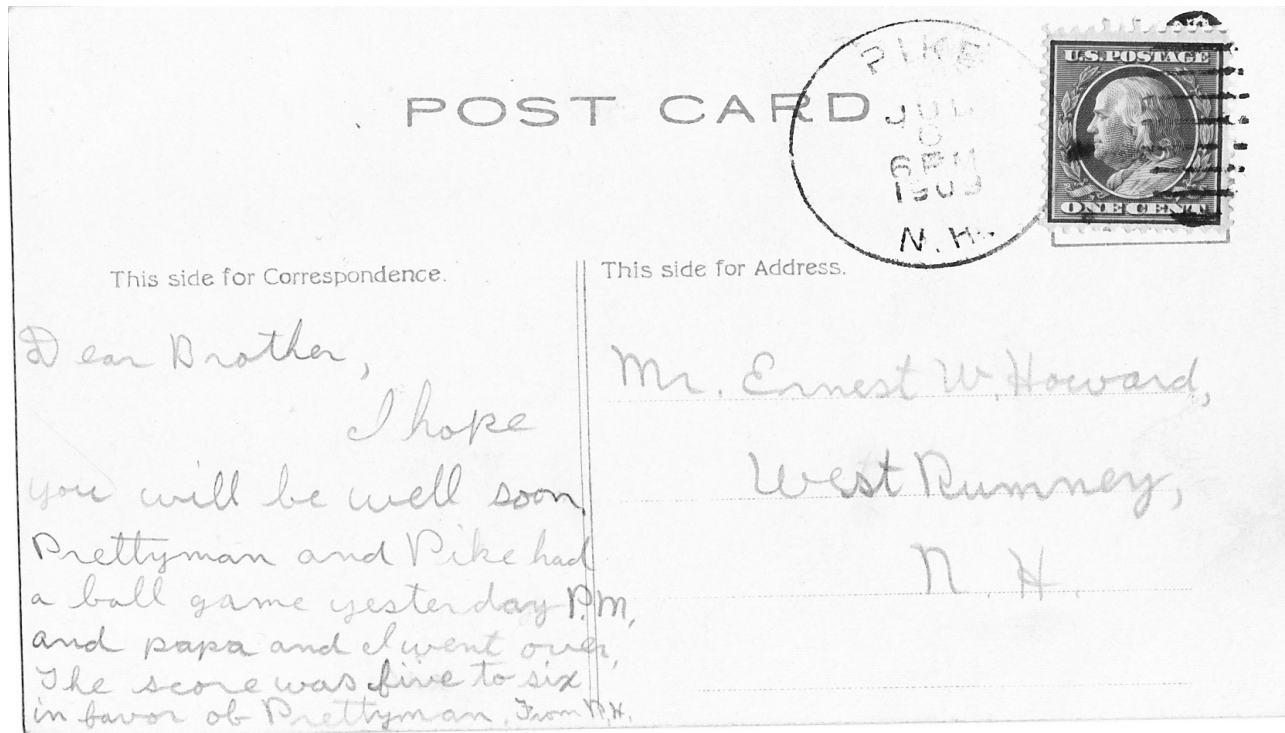 POST CARD
PIKE
JUL
6 PM
1909
N. H.
U.S. POSTAGE
ONE CENT
This side for Correspondence.
This side for Address.
Dear Brother,
I hope
you will be well soon.
Prettyman and Pike had
a ball game yesterday P.M.,
and papa and I went over,
The score was five to six
in favor of Prettyman. From R.H.
Mr. Ernest W. Howard,
West Rumney,
N. H.